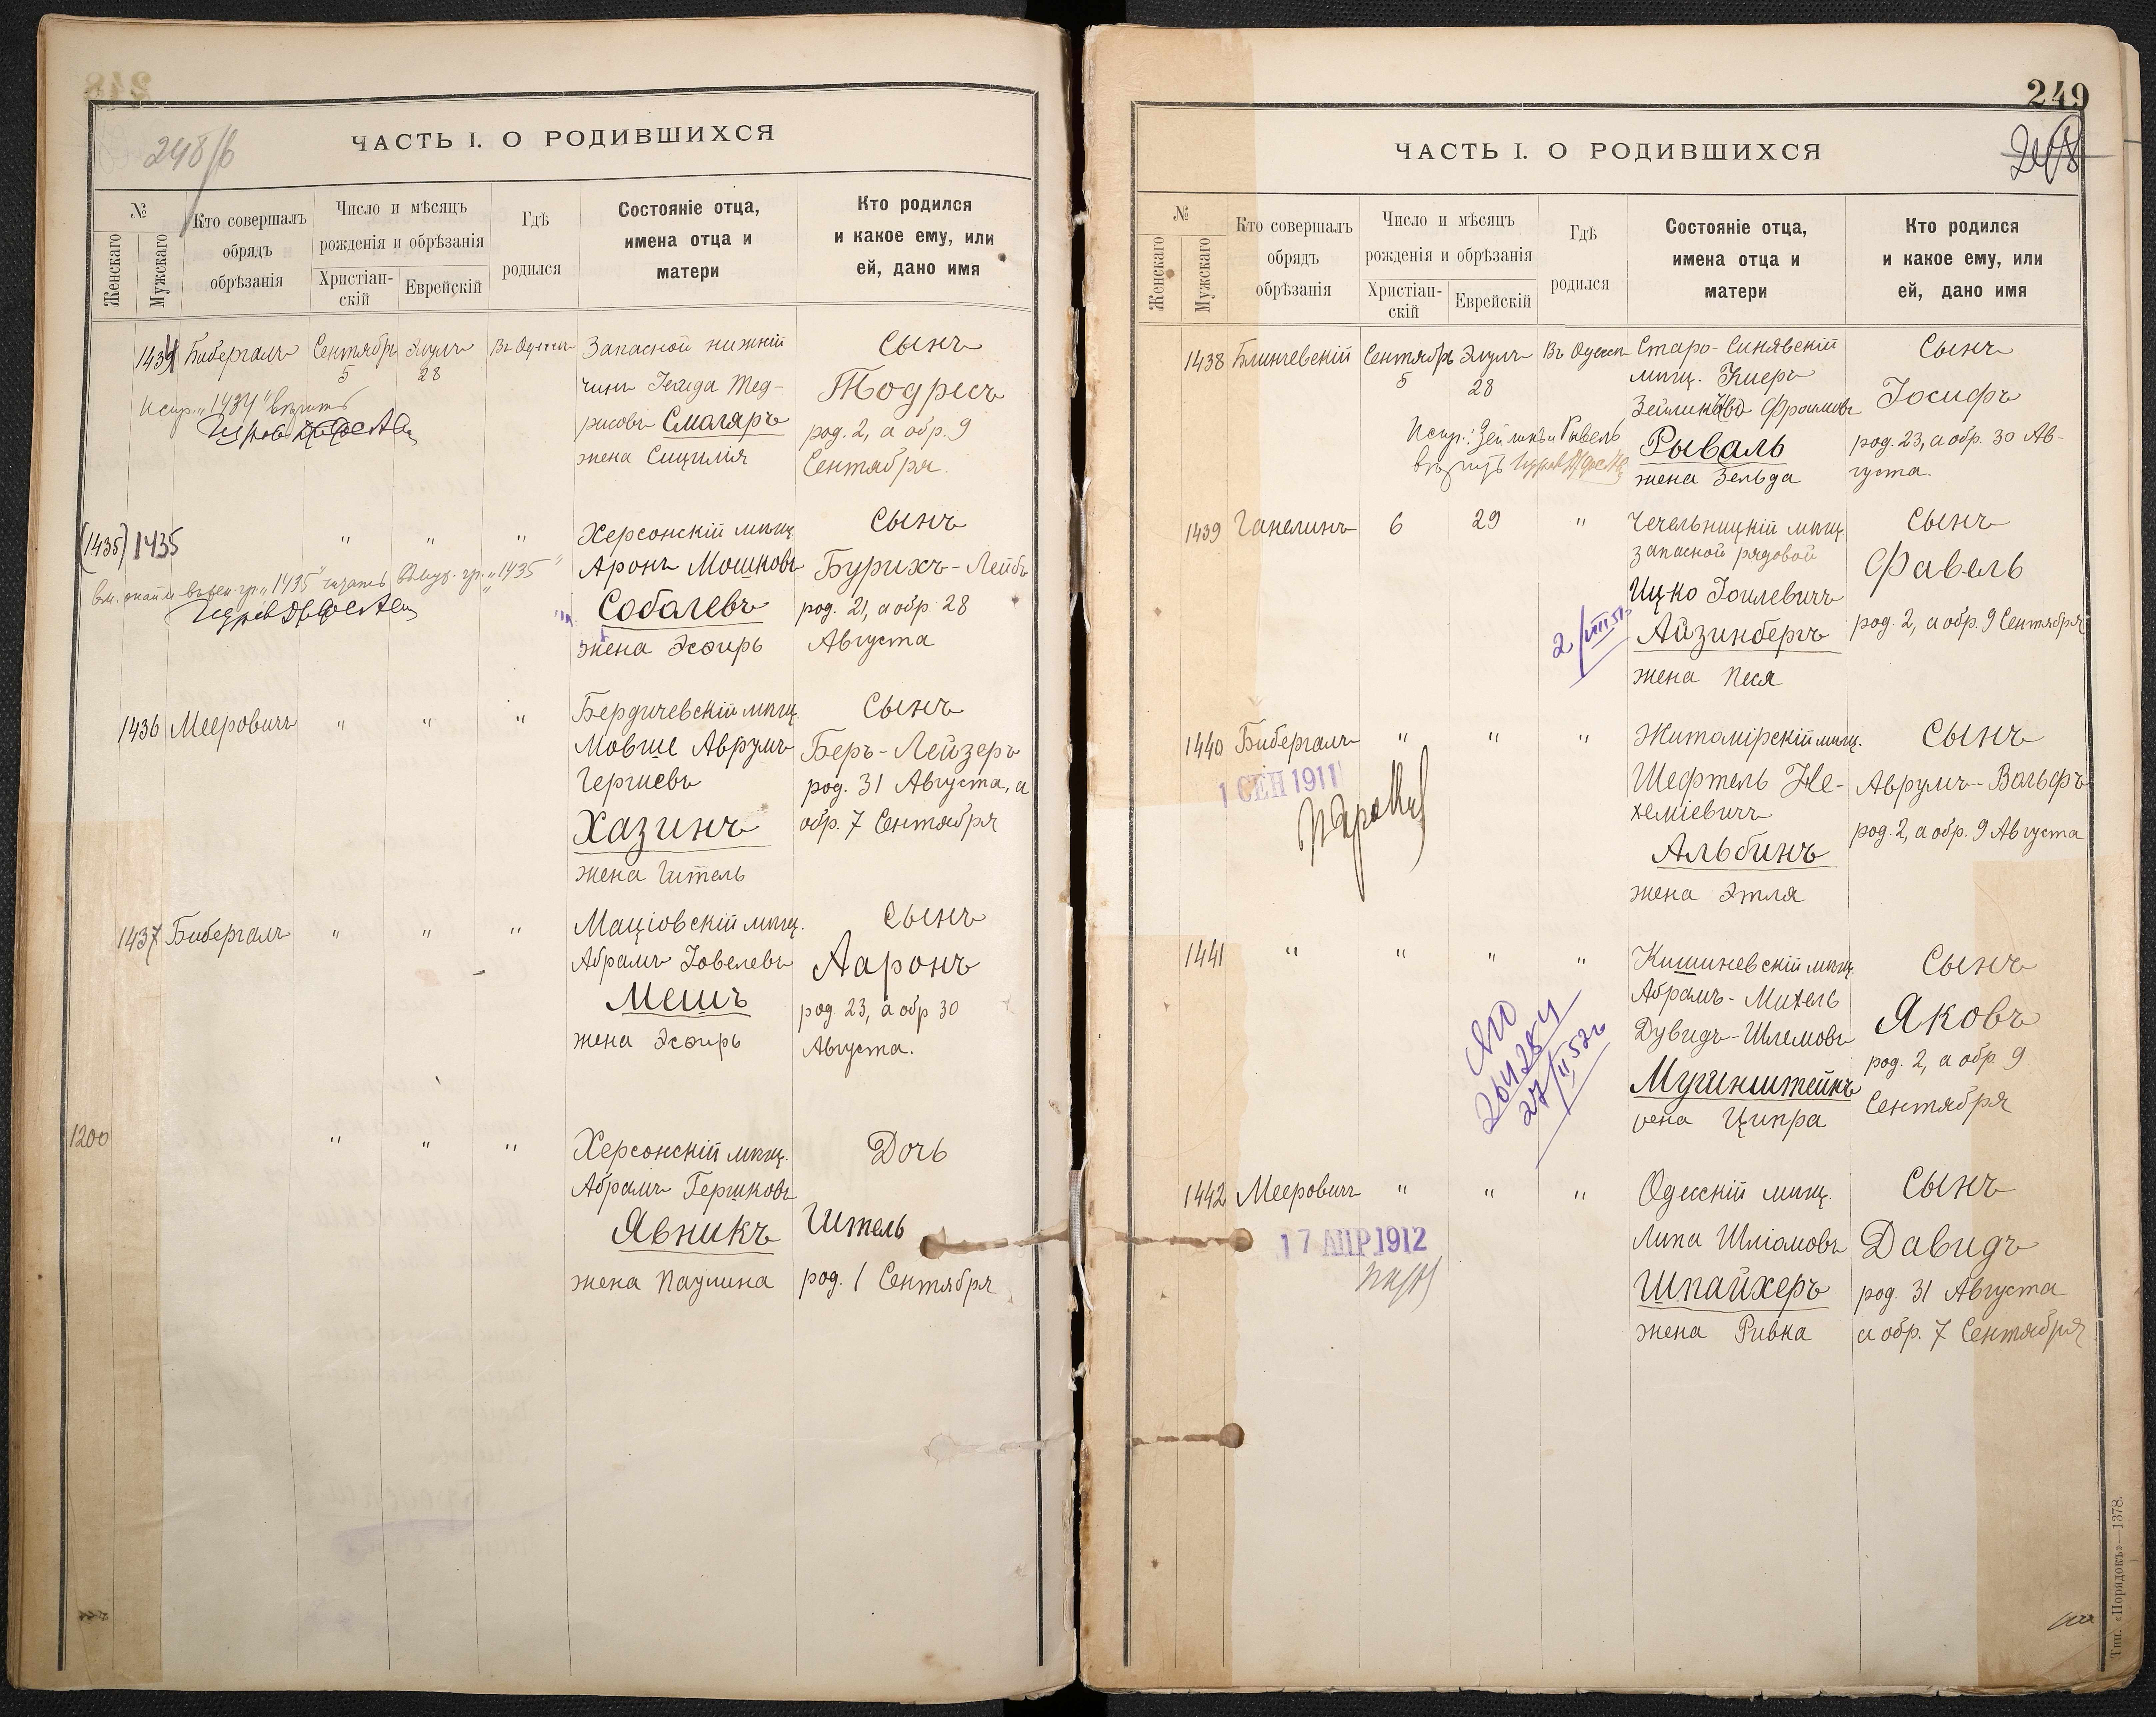 248/б
ЧАСТЬ I. О РОДИВШИХСЯ
№
Женскаго
Мужскаго
Кто совершалъ обрядъ обрѣзанія
Число и мѣсяцъ рожденія и обрѣзанія
Христіан-скій
Еврейскій
Гдѣ родился
Состояніе отца, имена отца и матери
Кто родился и какое ему, или ей, дано имя
1434 Бибергалъ Сентябрь 5 Элулъ 28 Въ Одессѣ
Запасной нижній
чинъ
Тод-
рисовъ Смоляръ
жена Сицилія
Сынъ
Тодресъ
род. 2, а обр. 9
Сентября.
Испр. "1434" вѣрить
(1435) 1435 " " "
"1435" читать "1435"
Херсонскій мѣщ.
Аронъ Мошковъ
Соболевъ
жена Эсѳирь
Сынъ
Бурихъ-Лейбъ
род. 21, а обр. 28
Августа
1436 Мееровичъ " " "
Бердичевскій мѣщ.
Мовше Аврумъ
Гершевъ
Хазинъ
жена Гитель
Сынъ
Беръ-Лейзеръ
род. 31 Августа, а
обр. 7 Сентября
1437 Бибергалъ " " "
Маціовскій мѣщ.
Абрамъ Іовелевъ
Мешъ
жена Эсѳирь
Сынъ
Ааронъ
род. 23, а обр 30
Августа.
1200 " " "
Херсонскій мѣщ.
Абрамъ Гершковъ
Явникъ
жена Паулина
Дочь
Гитель
род. 1 Сентября
249
ЧАСТЬ I. О РОДИВШИХСЯ
№
Женскаго
Мужскаго
Кто совершалъ обрядъ обрѣзанія
Число и мѣсяцъ рожденія и обрѣзанія
Христіан-скій
Еврейскій
Гдѣ родился
Состояніе отца, имена отца и матери
Кто родился и какое ему, или ей, дано имя
1438 Блинчевскій Сентябрь 5 Элулъ 28 Въ Одессѣ
Старо-Синявскій
мѣщ. Киеръ
Фроимовъ
Рываль
жена Зельда
Сынъ
Іосифъ
род. 23, а обр. 30 Ав-
густа.
Испр.: Зейликъ и Рывель
вѣрить
1439 Ганелинъ 6 29 "
Чечельницкій мѣщ.
запасной рядовой
Ицко Іоилевичъ
Айзинбергъ
жена Песя
Сынъ
Фавель
род. 2, а обр. 9 Сентября
2/VIII 51
1440 Бибергалъ " " "
1 СЕН 1911
Житомірскій мѣщ.
Шефтель Не-
хеміевичъ
Альбинъ
жена Этля
Сынъ
Аврумъ-Вольфъ
род. 2, а обр. 9 Августа
1441 " " " "
Кишиневскій мѣщ.
Абрамъ-Михель
Дувидъ-Шлемовъ
Мугинштейнъ
жена Ципра
Сынъ
Яковъ
род. 2, а обр. 9
Сентября
27/II 52г
1442 Мееровичъ " " "
17 АПР 1912
Одесскій мѣщ.
Липа Шліомовъ
Шпайхеръ
жена Ривка
Сынъ
Давидъ
род. 31 Августа
а обр. 7 Сентября
Тип. «Порядокъ»—1378.